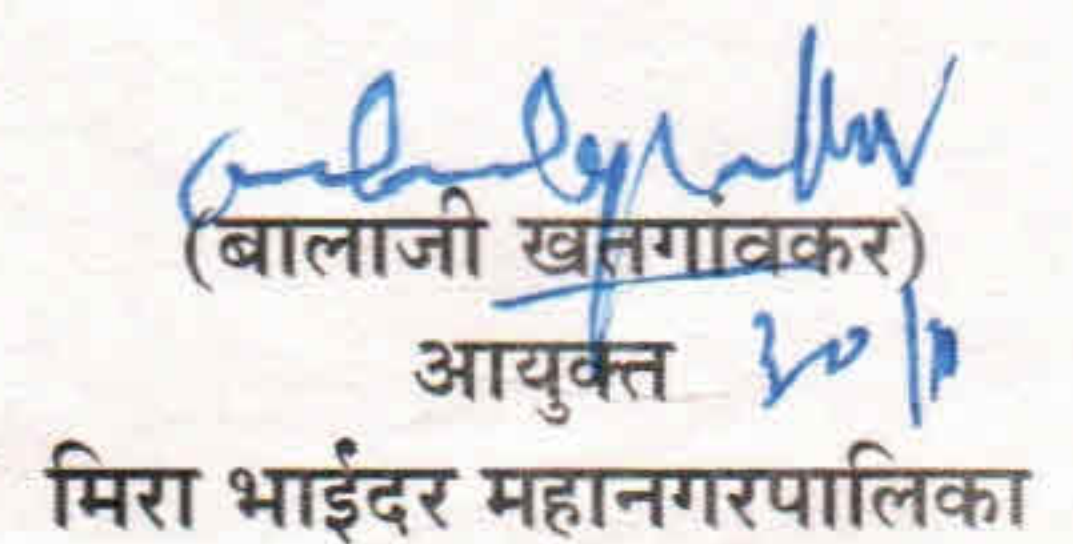 (बालाजी खतगांवकर)
आयुक्त
मिरा भाईंदर महानगरपालिका